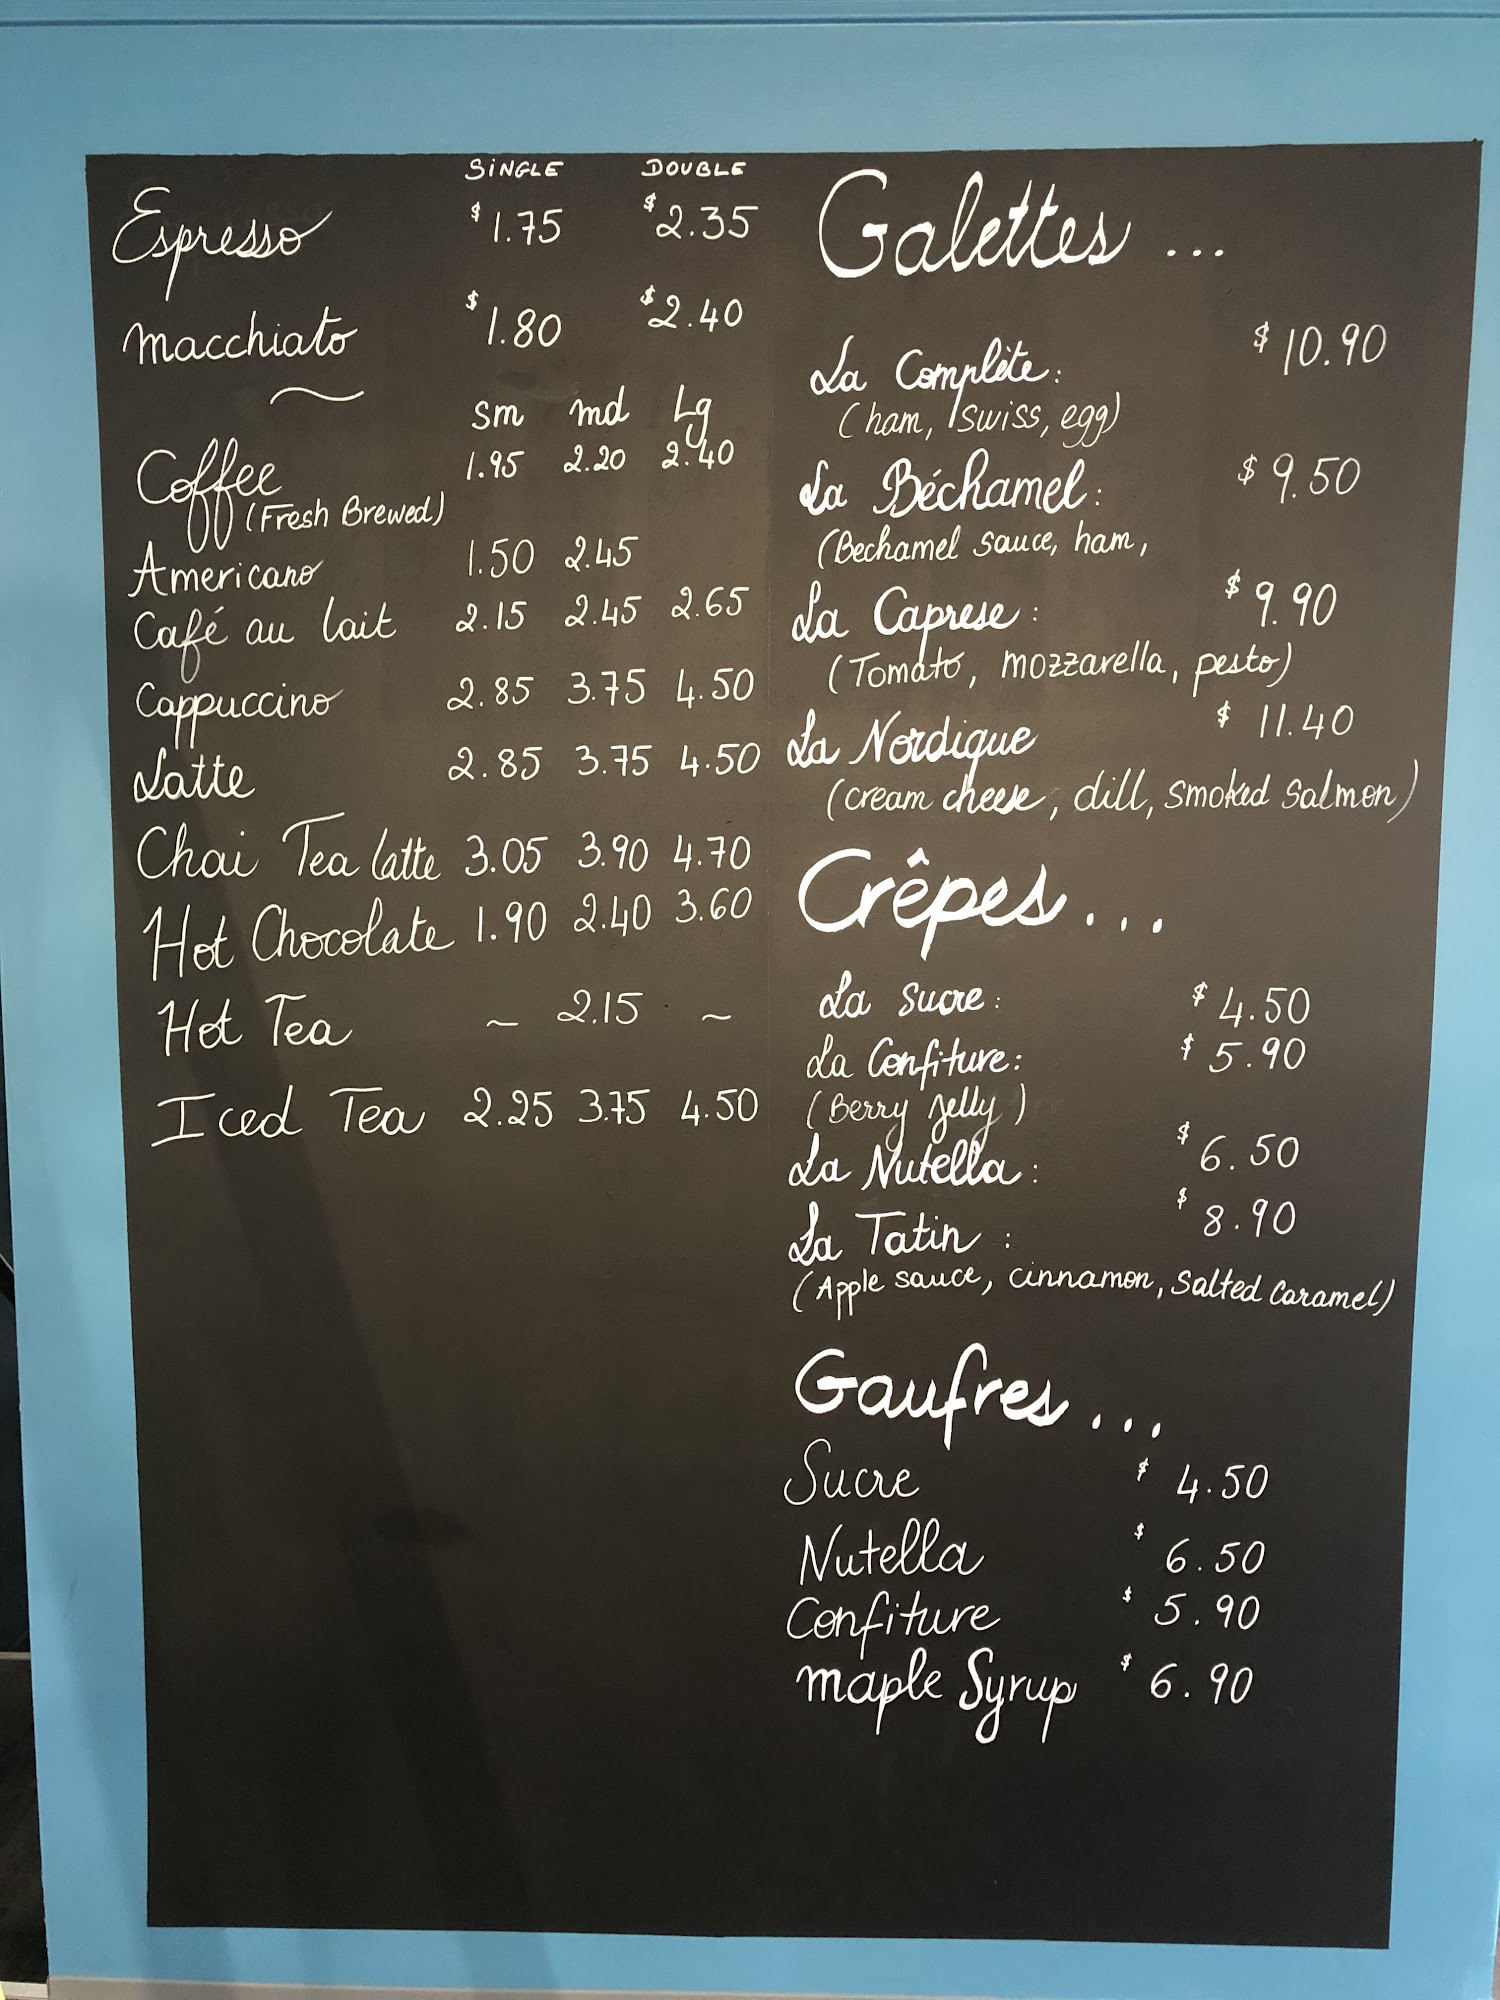 SINGLE DOUBLE
Espresso $1.75 $2.35
Macchiato $1.80 $2.40
~
sm md Lg
Coffee 1.95 2.20 2.40
(Fresh Brewed)
Americano 1.50 2.45
Café au lait 2.15 2.45 2.65
Cappuccino 2.85 3.75 4.50
Latte 2.85 3.75 4.50
Chai Tea latte 3.05 3.90 4.70
Hot Chocolate 1.90 2.40 3.60
Hot Tea ~ 2.15 ~
Iced Tea 2.25 3.75 4.50
Galettes ...
La Complète: $10.90
(ham, swiss, egg)
La Béchamel: $9.50
(Bechamel sauce, ham,
La Caprese: $9.90
(Tomato, mozzarella, pesto)
La Nordique $11.40
(cream cheese, dill, smoked salmon)
Crêpes...
La Sucre: $4.50
La Confiture: $5.90
(Berry Jelly)
La Nutella: $6.50
La Tatin: $8.90
(Apple sauce, cinnamon, salted caramel)
Gaufres...
Sucre $4.50
Nutella $6.50
Confiture $5.90
maple Syrup $6.90